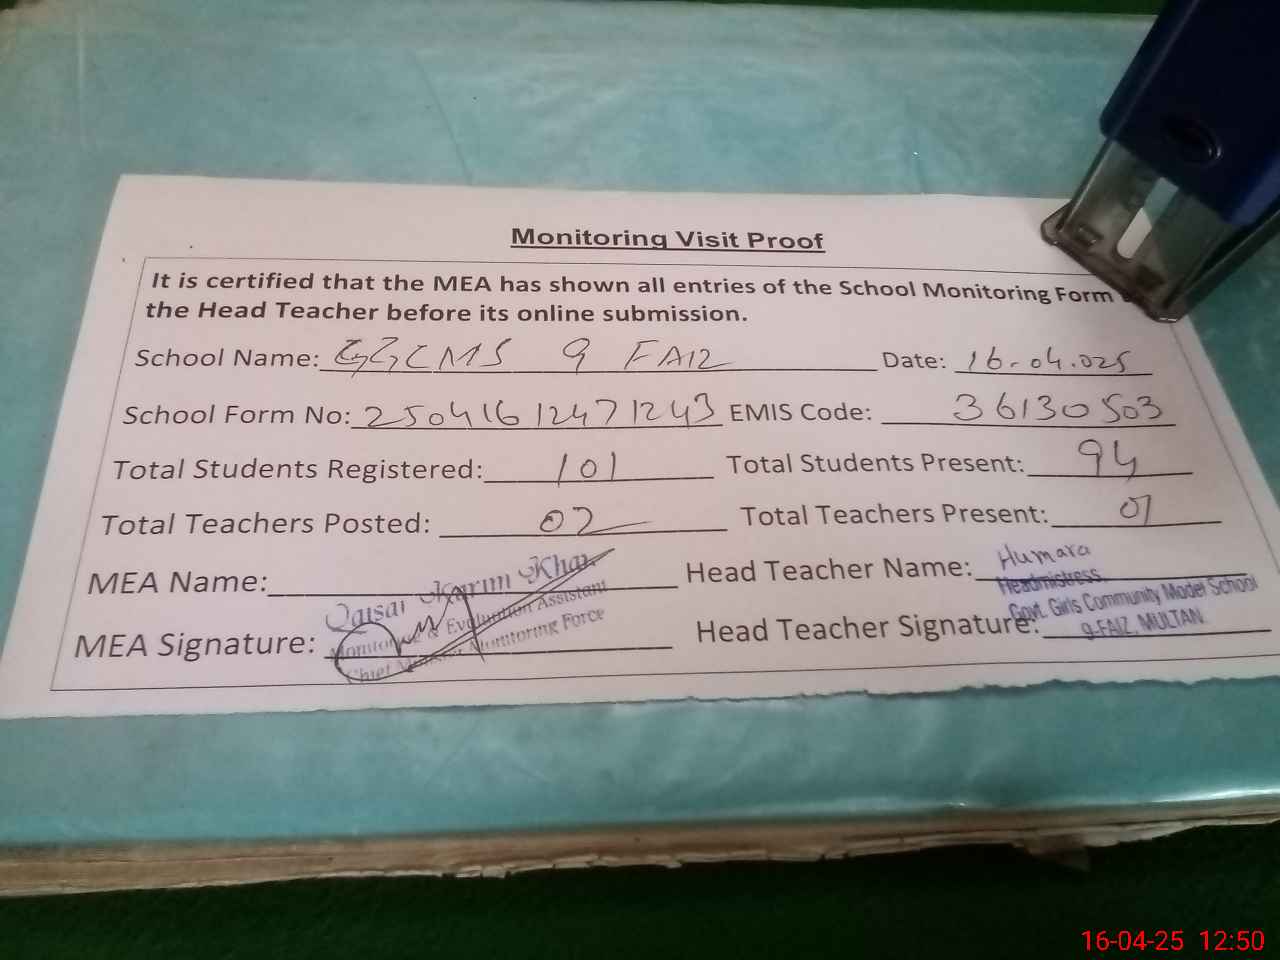 Monitoring Visit Proof
It is certified that the MEA has shown all entries of the School Monitoring Form
the Head Teacher before its online submission.
School Name: GGCMS 9 FAIZ Date: 16-04.025
School Form No: 25041612471243 EMIS Code: 36130503
Total Students Registered: 101 Total Students Present: 94
Total Teachers Posted: 02 Total Teachers Present: 01
MEA Name: Qaisar Karim Khan Head Teacher Name: Humara
Headmistress
Monitoring & Evaluation Assistant Govt. Girls Community Model School
MEA Signature: Chief Minister Monitoring Force Head Teacher Signature: 9-FAIZ, MULTAN
16-04-25 12:50